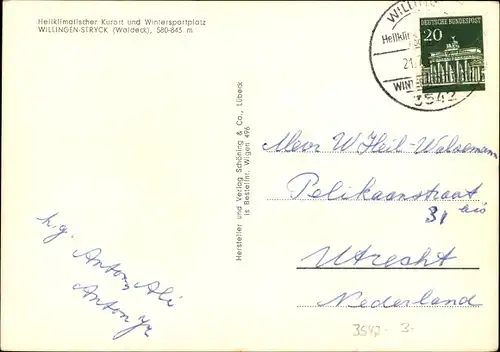 Heilklimatischer Kurort und Wintersportplatz
WILLINGEN-STRYCK (Waldeck), 580-845 m
WILLING
Heilklim
21.
WINTER
3542
DEUTSCHE BUNDESPOST
20
Hersteller und Verlag Schöning & Co., Lübeck
is Bestellnr. Wigen 496
Mevr W Heil-Walsemann
Pelikaanstraat
31 bis
Utrecht
Nederland
h.g.
Anton, Ali
Anton Jr
3542 B.